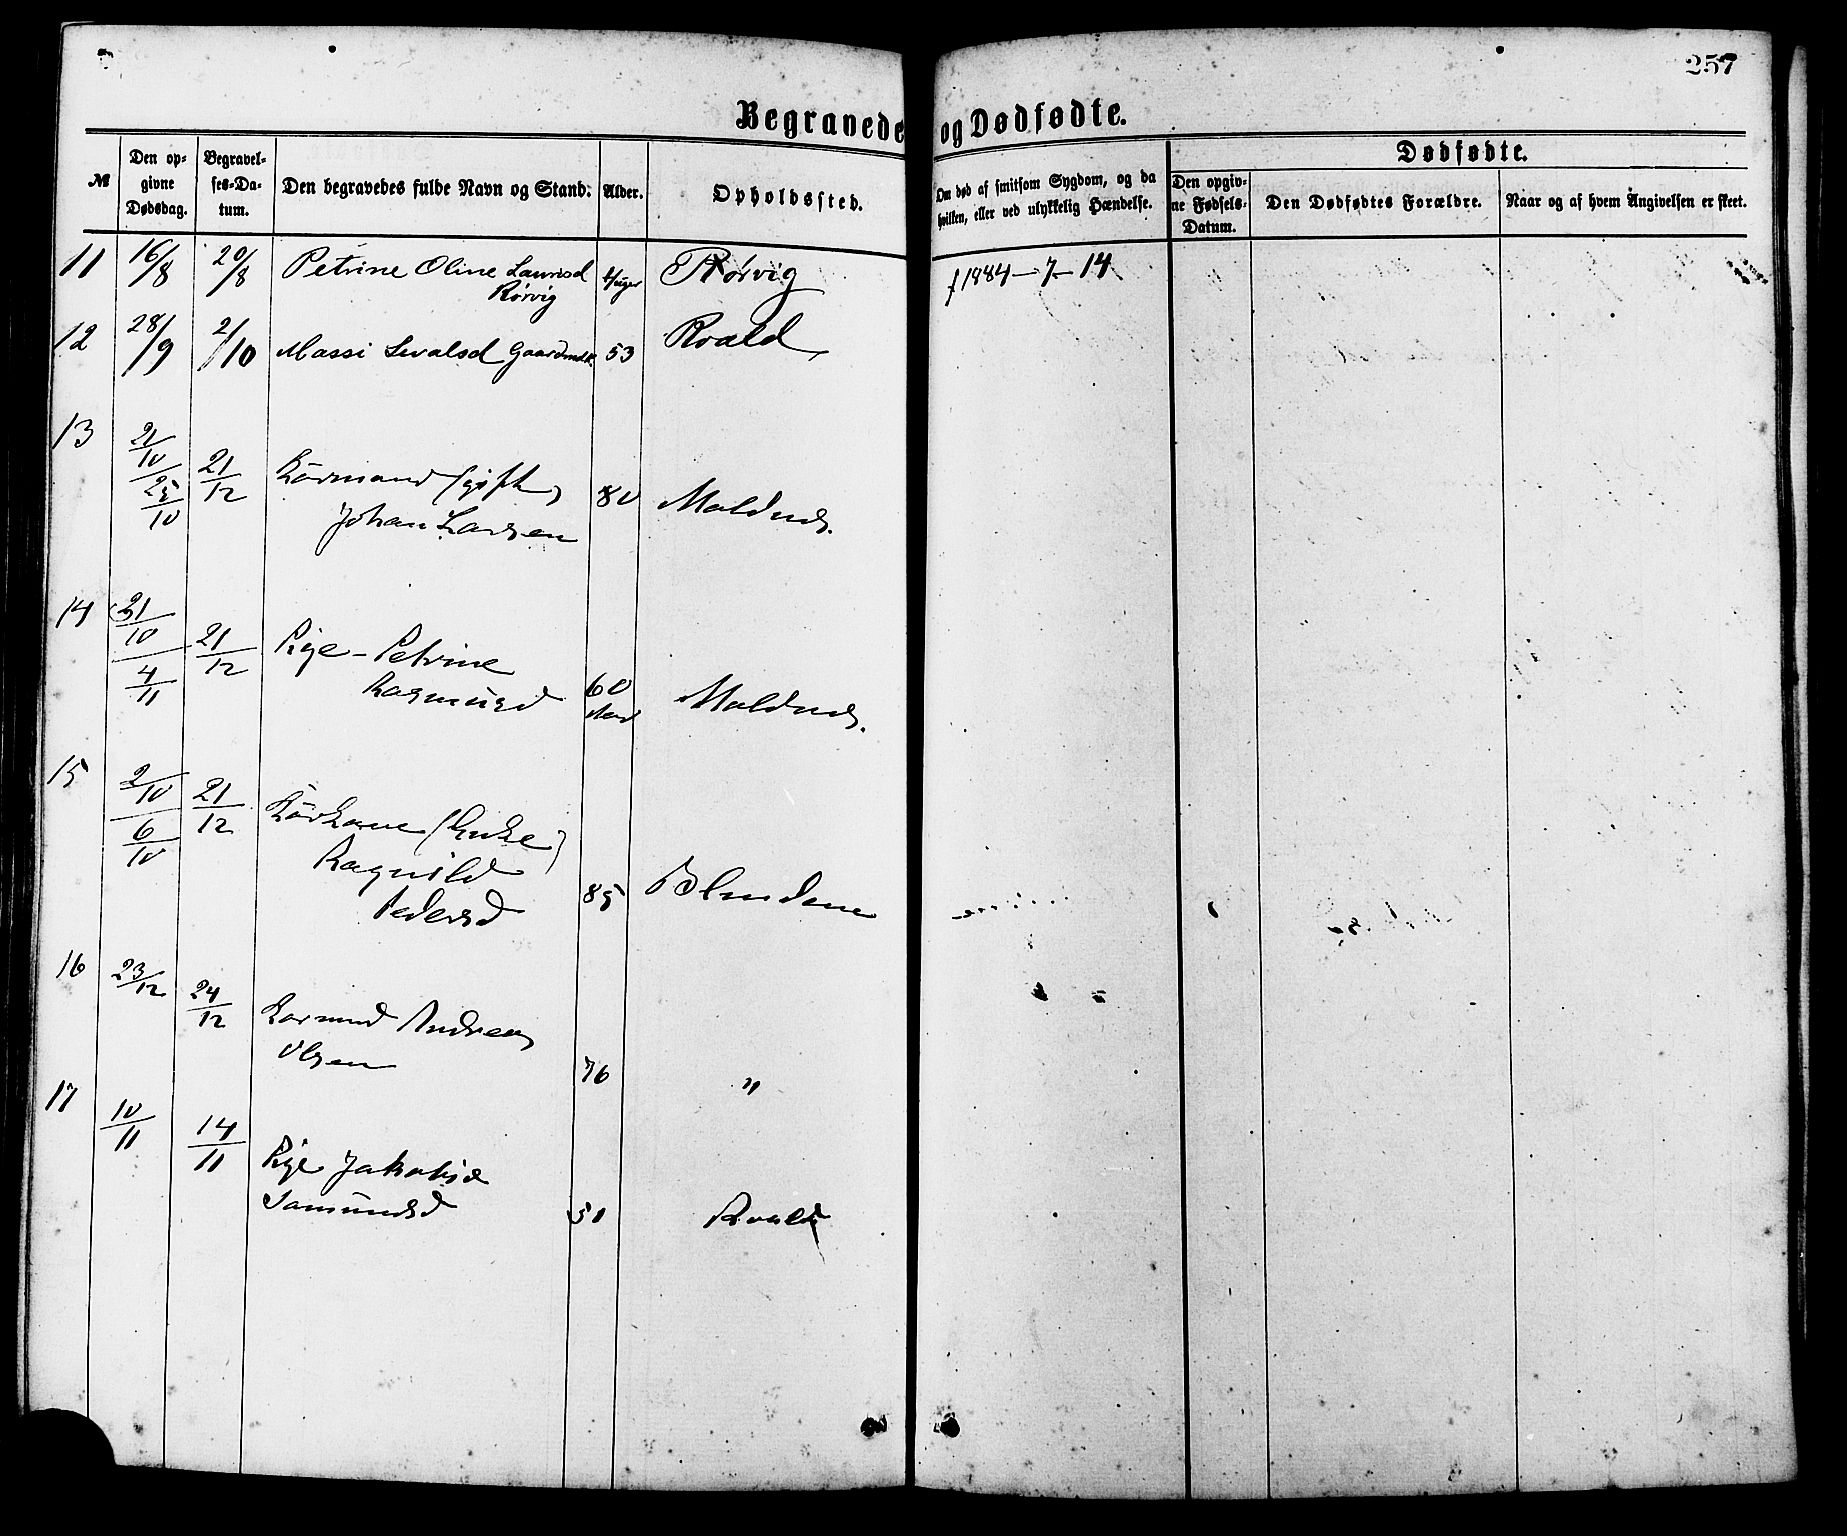 257
Begravede og Dødfødte.
Dødfødte.
№
Den op-
givne
Dødsdag.
Begravel-
ses-Da-
tum.
Den begravedes fulde Navn og Stand.
Alder.
Opholdssted.
Om død af smitsom Sygdom, og da
hvilken, eller ved ulykkelig Hændelse.
Den opgiv-
ne Fødsels-
Datum.
Den Dødfødtes Forældre.
Naar og af hvem Angivelsen er skeet.
11 16/8 20/8 Petrine Oline Laurisd 4 uger Rørvig f 1884-7-14
Rørvig
12 28/9 2/10 Massi Sivalsd 53 Roald
13 21/10 21/12 Kårmand (gift) 80 Moldnæs.
25/10 Johan Larsen
14 21/10 21/12 Pige - Petrine 60 Moldnæs.
4/11 Rasmusd Aar
15 2/10 21/12 Kårkone (Enke)
6/10 Ragnild
Pedersd 85 Blindem
16 23/12 24/12 Karmand Andreas
Olsen 76 "
17 10/11 14/11 Pige Jakobie
Samundsd 51 Roald